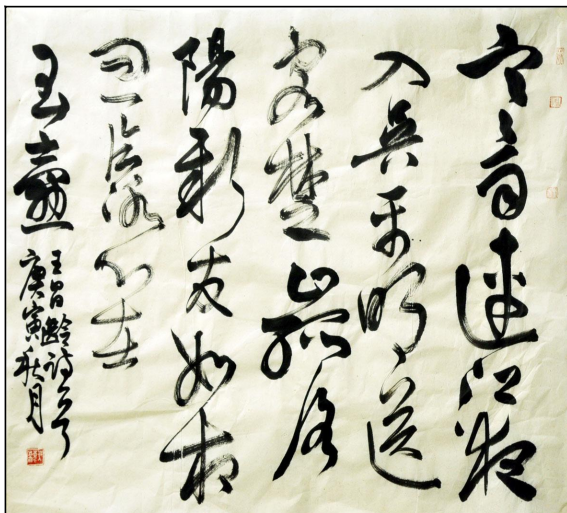 寒雨連江夜
入吳平明送
客楚山孤洛
陽親友如相
問一片冰心在
玉壺
王昌齡詩
庚寅秋月